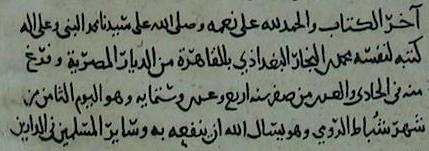 آخر الكتاب والحمد لله على نعمه وصلى الله على سيدنا محمد النبي وعلى اله
كتبه لنفسه محمد النجار البغدادي بالقاهرة من الديار المصرية وفرغ
منه في الحادي والعشرين من صفر سنه اربع وعشرين وستمايه وهو اليوم الثامن من
شهر شباط الرومي وهو يسال الله ان ينفعه به وساير المسلمين في الدارين